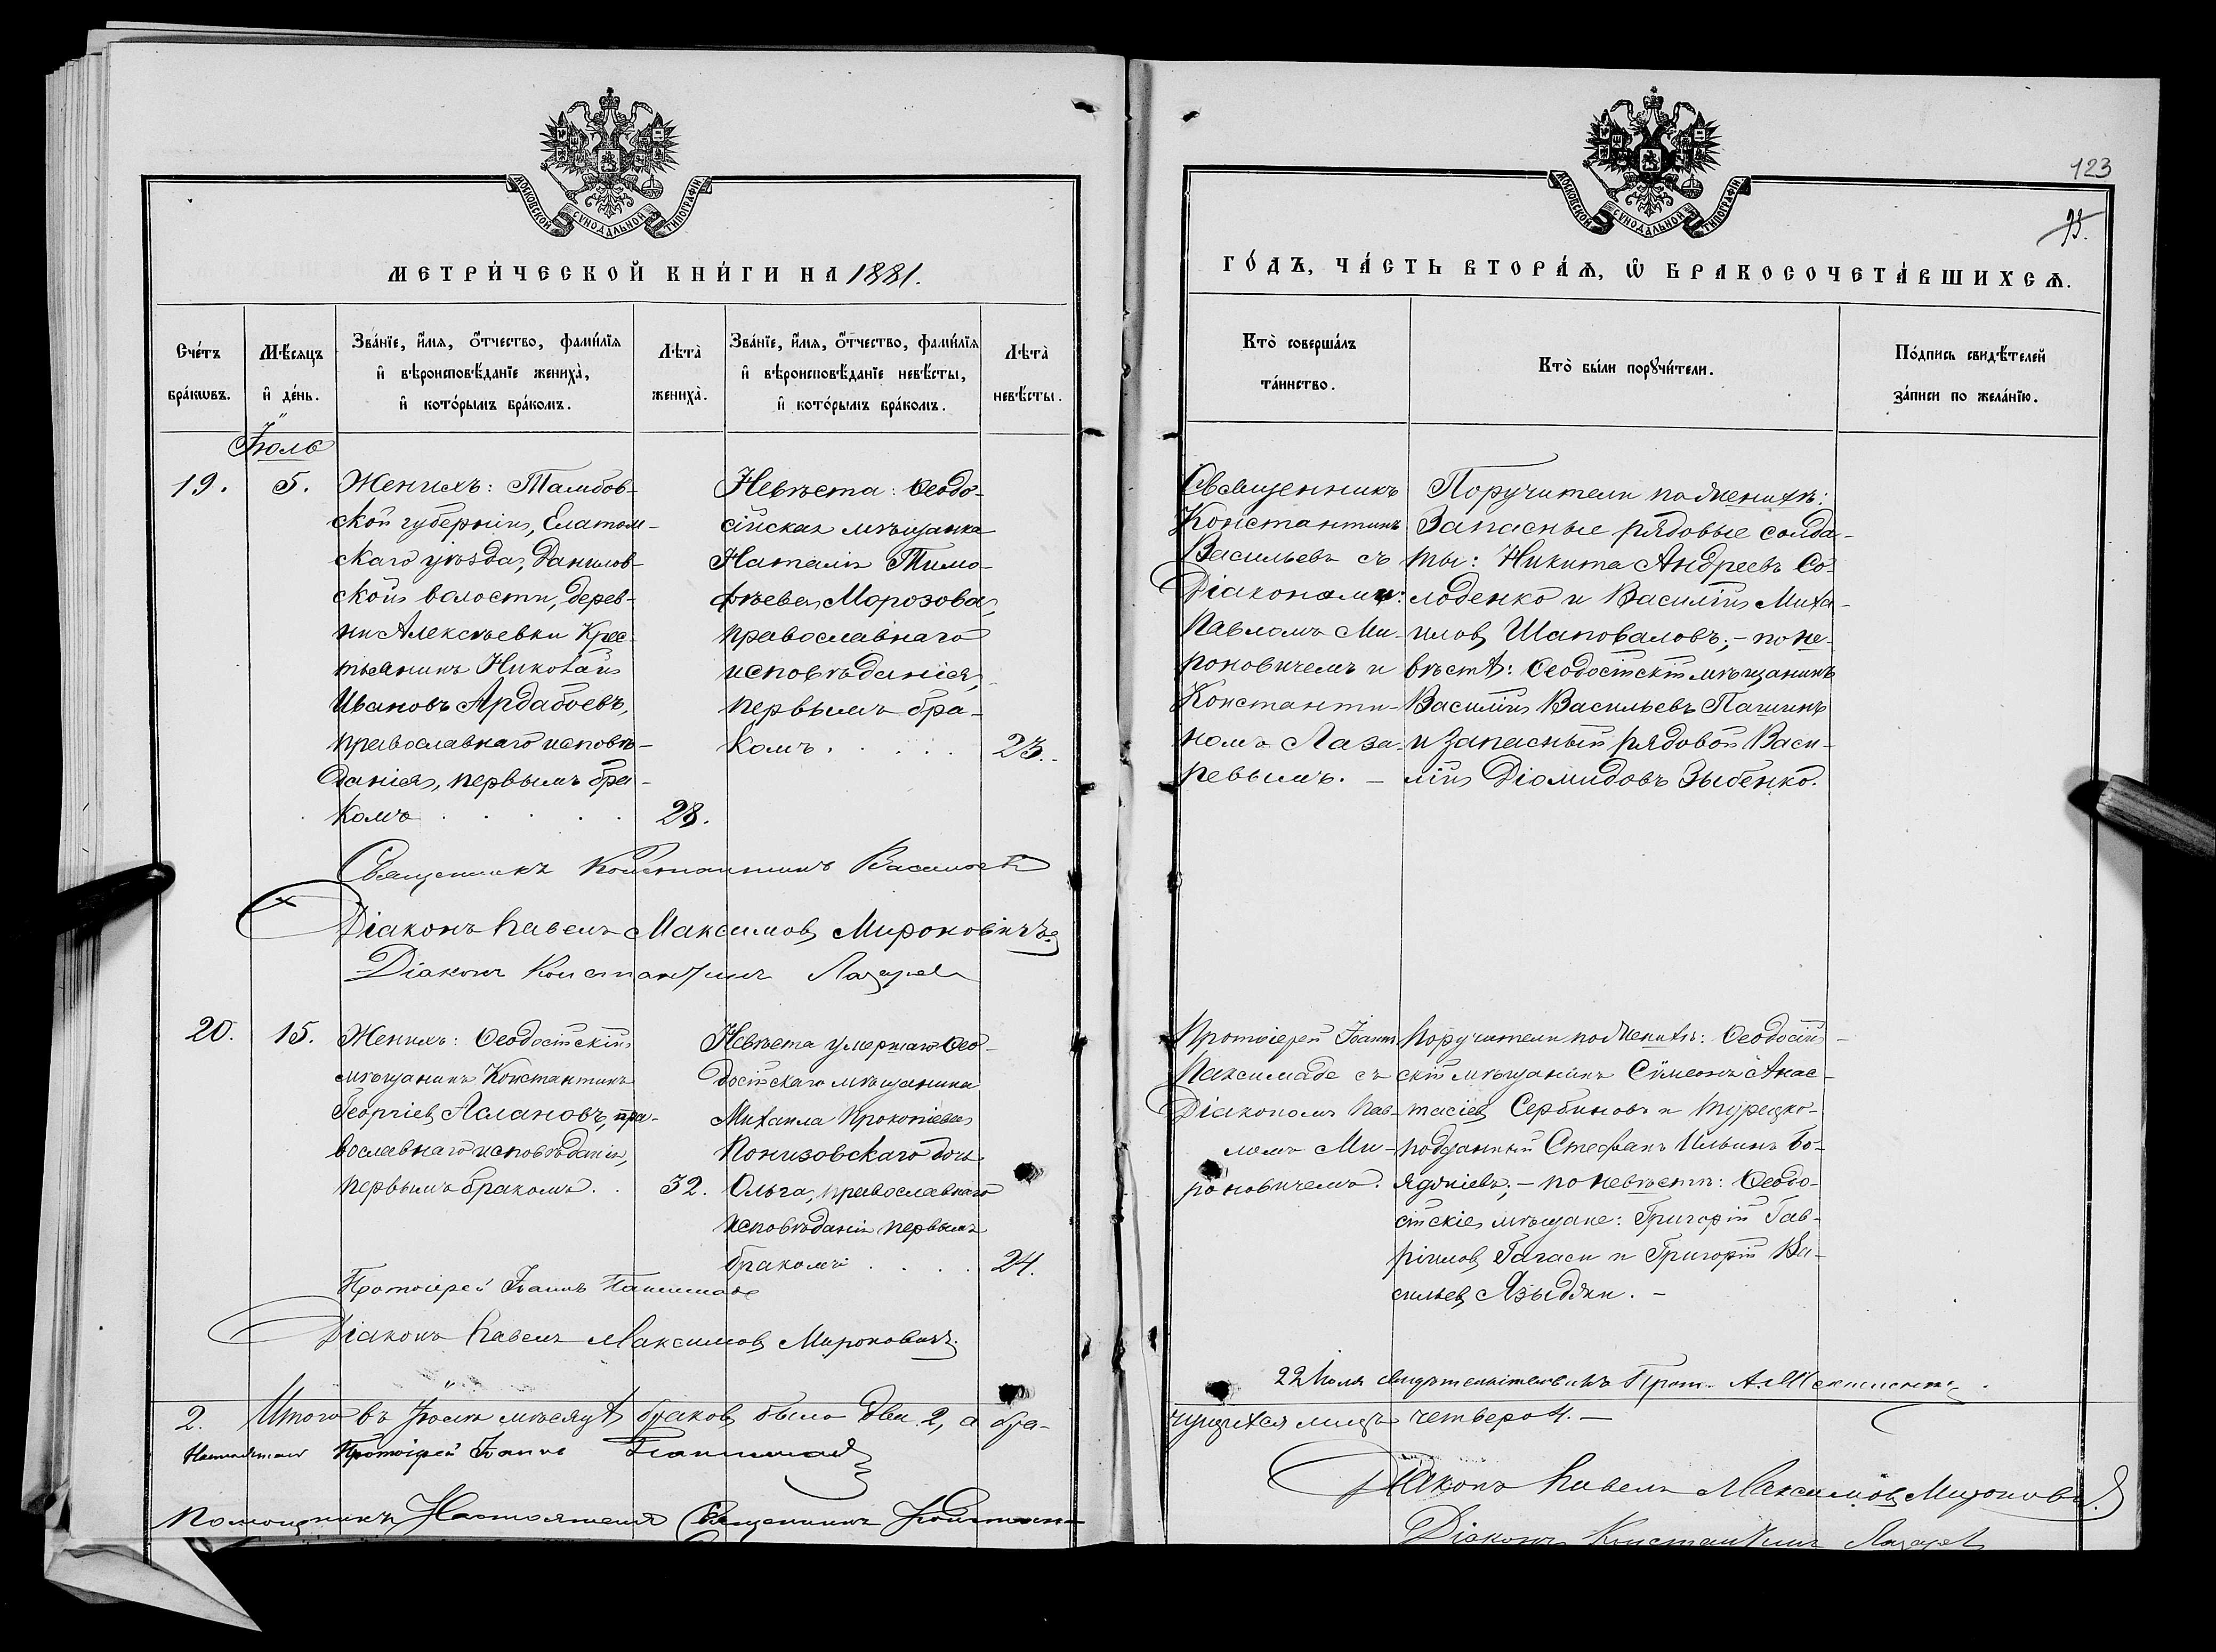 МОСКОВСКОЙ СѴНОДАЛЬНОЙ ТИПОГРАФІИ
МЕТРИ́ЧЕСКОЙ КНИ́ГИ НА 1881.
Сче́тъ бра́кѡвъ.
Мѣ́сяцъ и҆ де́нь.
Зва́нїе, и҆́мя, ѻ҆́тчество, фами́лїя
и҆ вѣроисповѣ́данїе жениха̀,
и҆ кото́рымъ бра́комъ.
Лѣта̀ жениха̀.
Зва́нїе, и҆́мя, ѻ҆́тчество, фами́лїя
и҆ вѣроисповѣ́данїе невѣ́сты,
и҆ кото́рымъ бра́комъ.
Лѣта̀ невѣ́сты.
Іюль
19. 5.
Женихъ: Тамбов-
ской губерніи, Елатом-
скаго уѣзда, Данилов-
ской волости, дерев-
ни Алексѣевки Крес-
тьянинъ Николай
Ивановъ Ардабоевъ,
православнаго исповѣ-
данія, первымъ бра-
комъ 28.
Невѣста: Ѳеодо-
сійская мѣщанка
Наталія Тимо-
фѣева Морозова,
православнаго
исповѣданія,
первымъ бра-
комъ. 23.
Священникъ Константинъ Васильевъ
Діаконъ Павелъ Максимовъ Мироновичъ
Діаконъ Константинъ Лазарев
20. 15.
Женихъ: Ѳеодосійскій
мѣщанинъ Константинъ
Георгіевъ Аслановъ, пра-
вославнаго исповѣданія,
первымъ бракомъ. 32.
Невѣста умершаго Ѳео-
досійскаго мѣщанина
Михаила Прокопіева
Понизовскаго дочь
Ольга, православнаго
исповѣданія первымъ
бракомъ 24.
Протоіерей Іоаннъ
Діаконъ Павелъ Максимовъ Мироновичъ.
2. Итого въ Іюлѣ мѣсяцѣ браковъ было два 2, а бра-
Протоіерей Іоаннъ
Помощникъ Настоятеля Священникъ
МОСКОВСКОЙ СѴНОДАЛЬНОЙ ТИПОГРАФІИ
123
93.
ГО́ДЪ, ЧА́СТЬ ВТОРА́Ѧ, Ѡ҆ БРАКОСОЧЕТА́ВШИХСѦ.
Кто̀ соверша́лъ
та́инство.
Кто̀ бы́ли порꙋчи́тели.
По́дпись свидѣ́телей
за́писи по жела́нїю.
Священникъ
Константинъ
Васильевъ съ
Діаконами:
Павломъ Ми-
роновичемъ и
Константи-
номъ Лаза-
ревымъ. –
Поручители по женихѣ:
Запасные рядовые солда-
ты: Никита Андреевъ Со-
лоденко и Василій Миха-
иловъ Шаповаловъ; – по не-
вѣстѣ: Ѳеодосійскій мѣщанинъ
Василій Васильевъ Пашинъ
и запасный рядовой Васи-
лій Діомидовъ Зыбенко.
Протоіерей Іоаннъ
Паксимаде съ
Діакономъ Пав-
ломъ Ми-
роновичемъ.
Поручители по женихѣ: Ѳеодосій-
скій мѣщанинъ Сѵмеонъ Анас-
тасіевъ Сербиновъ и турецко-
подданный Стефанъ Ильинъ Бо-
яджіевъ; – по невѣстѣ: Ѳеодо-
сійскіе мѣщане: Григорій Гав-
ріиловъ Гагаси и Григорій Ва-
сильевъ Языджи. –
22 Іюля свидѣтельствовалъ Прот. А.
чущихся лицъ четверо 4. –
Діаконъ Павелъ Максимовъ Миронович.
Діаконъ Константинъ Лазарев